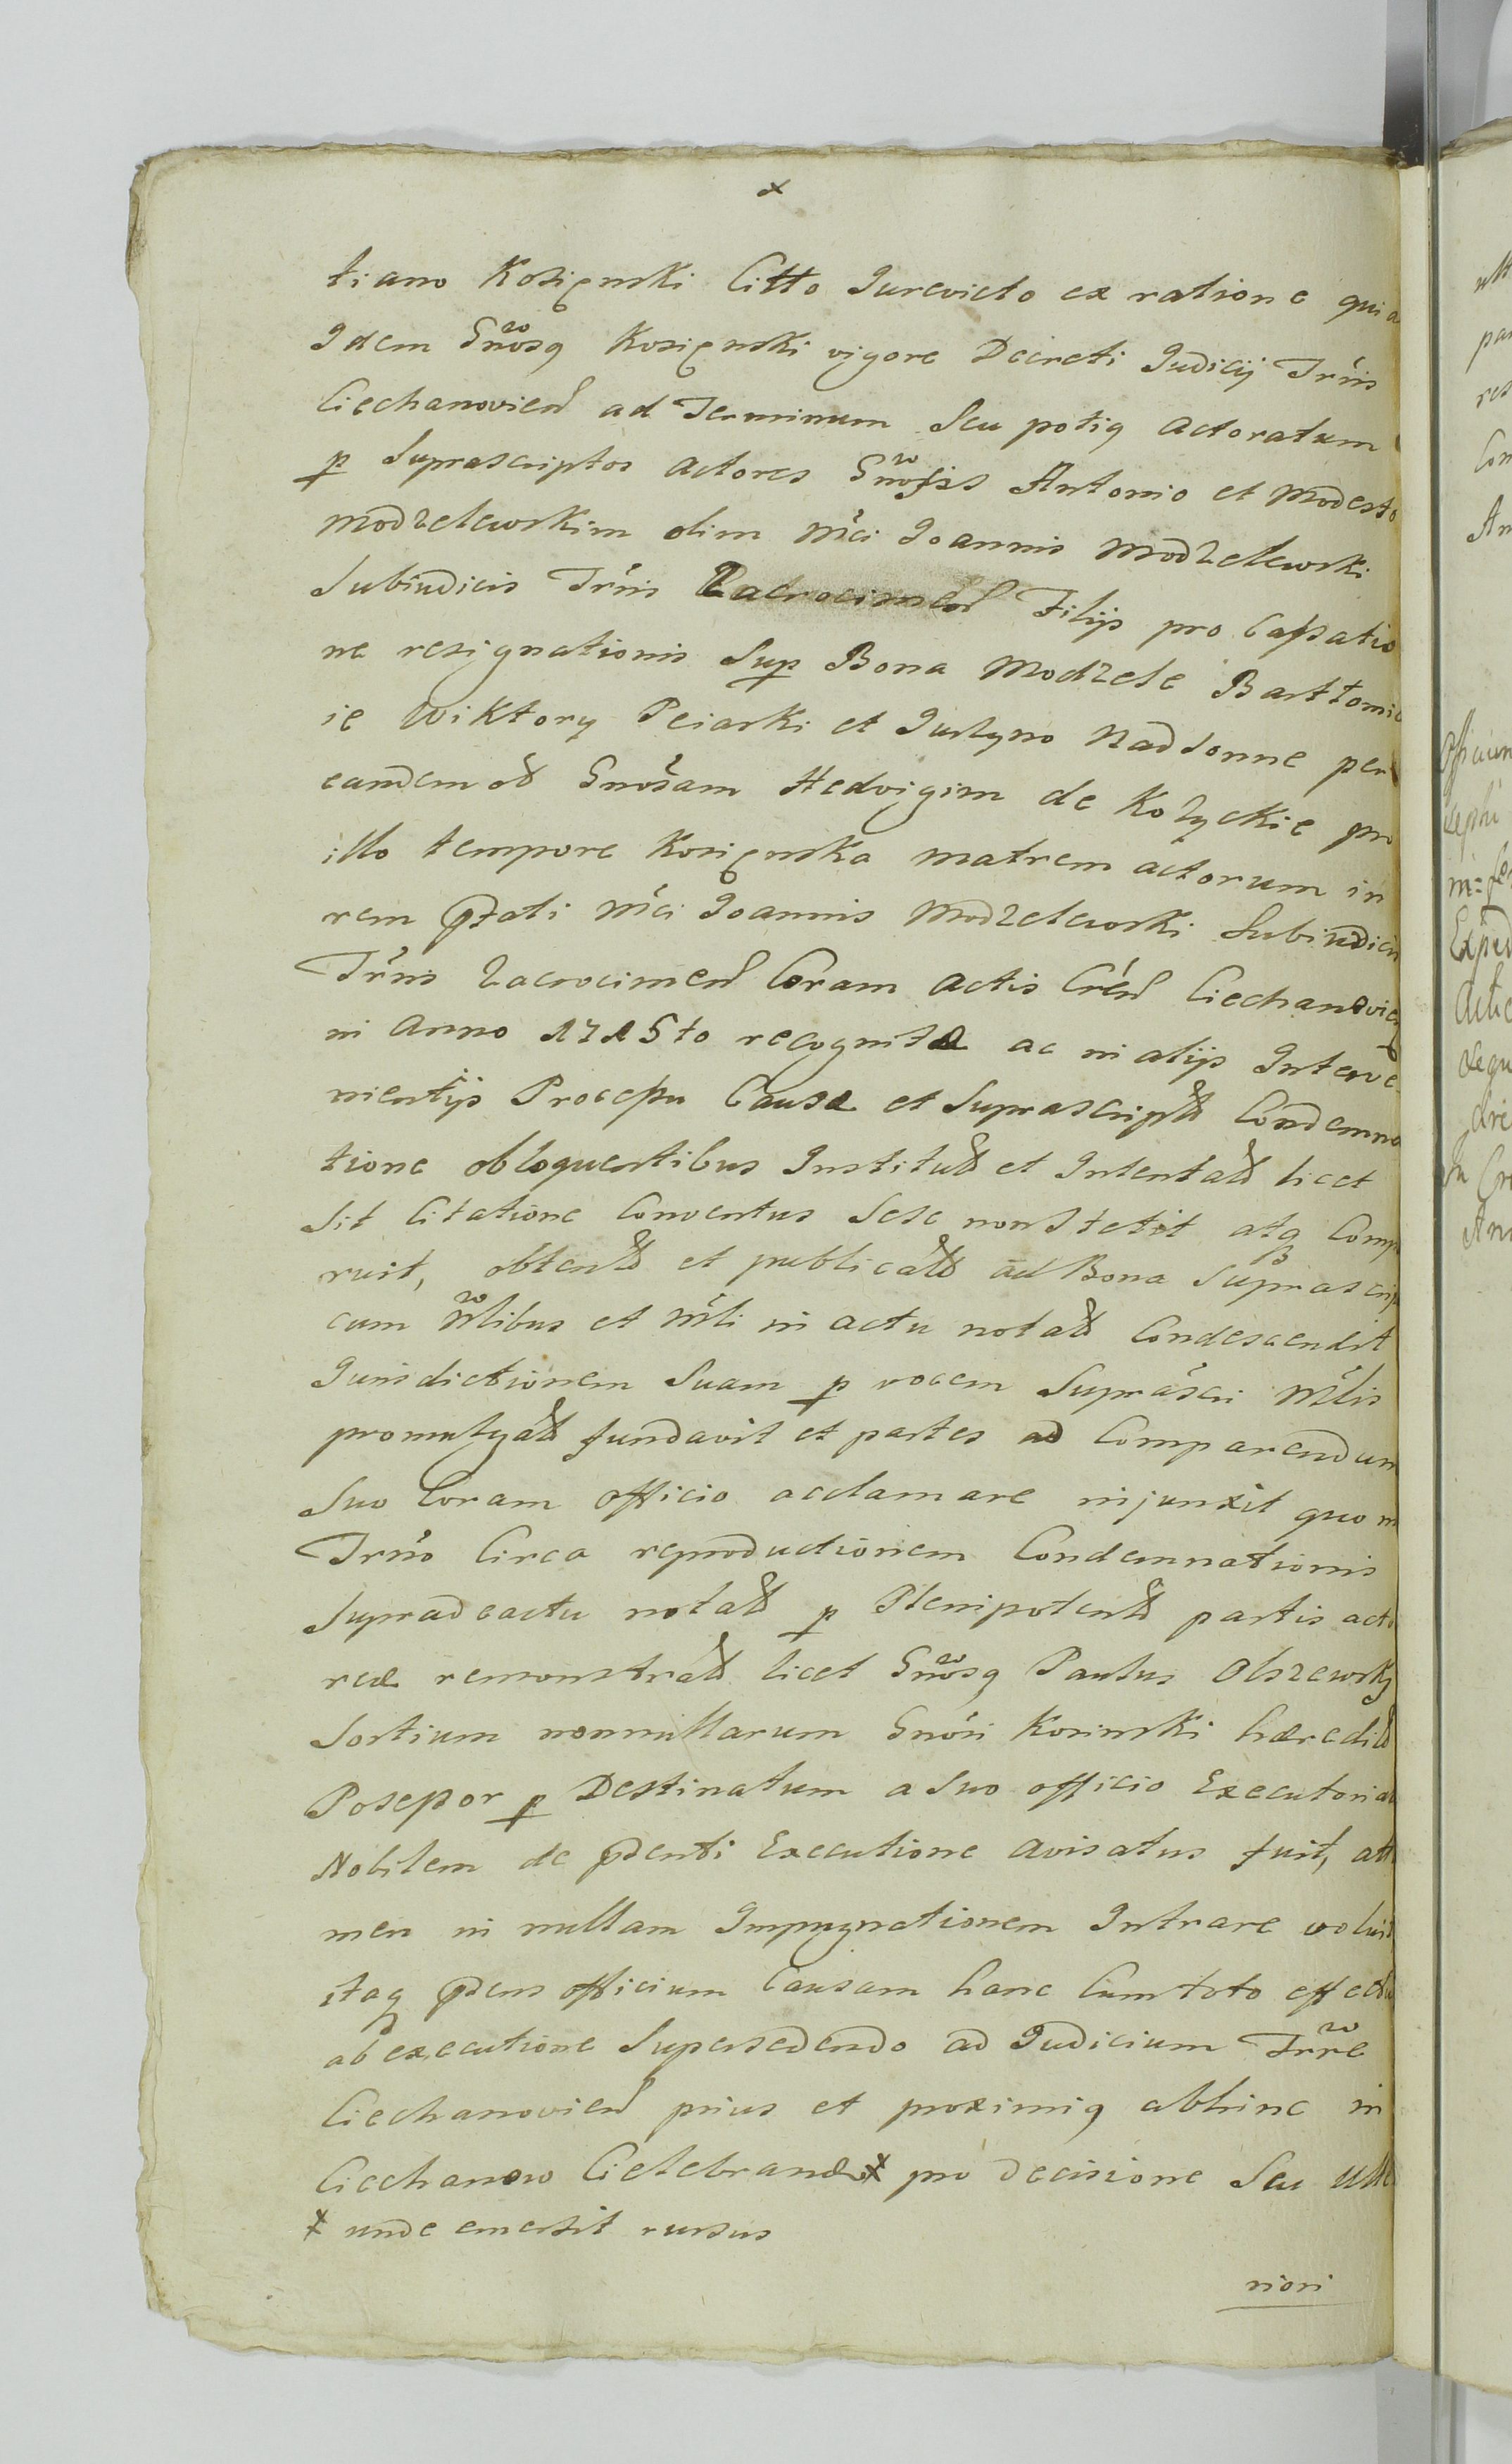 x
tiano Kosięnski Citto Jurevicto ex ratione quia
Idem Gnosq Kosięnski vigore Decreti Judicij Trris
Ciechanovien ad Terminum Seu potiq actoratum
p Suprascriptos actores Antonio et Modesto
Modzelewskim olim Mci Joannis Modzelewski
Subiudicis Trris Zacrocimen Filijs pro Cassatio
ne resignationis Sup Bona Modzele Barttomie
ie Wiktory Peiarki et Justyno Nadsonne per
eandem Gnosam Hedvigim de Kozyckie pro
illo tempore Kosięnska matrem actorum in
rem Mci Joannis Modzelewski Subiudicis
Trris Zacrocimen Coram actis Cren Ciechanovien
in anno 1715to recognitæ ac in alijs Interve
nientijs Processu Causæ et Suprascript Condemna
tione obloquentibus Institut et Intentat licet
Sit Citatione Conventus Sese non Stetit atq Compa
ruit, obtent et publicat ad Bona Suprascrip
cum Mlibus et Mli in actu notat Condescendit
Jurisdictionem Suam p vocem Suprasci Mlis
promulgat fundavit et partes ad Comparendum
Suo Coram officio acclamare injunxit quo in
Trno Circa reproductionem Condemnationis
Supradeactu notat p Plenipotent partis acto
reæ remonstrat licet Gnosq Paulus Olszewsky
Sortium nonnullarum Gnosi Kosinski hæredit
Posessor p Destinatum a Suo officio Executoriali
Nobilem de pdenti Executione avisatus fuit, atta
men in nullam Impugnationem Intrare voluit
itaq pdens officium Causam hanc Cum toto effectu
ab executione Supersedendo ad Judicium Trre
Ciechanovien prius et proximiq abhinc in
Ciechanow Cielebrand x pro decisione Seu Ulte
x unde emersit rursus
riori